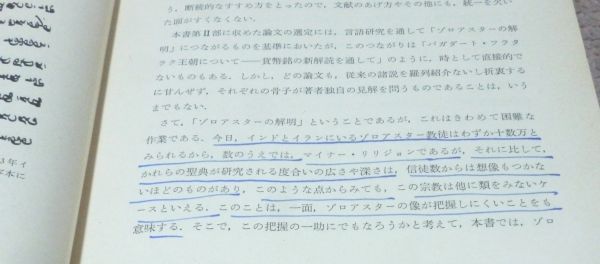 う．断続的なすすめ方をとったので，文献のあげ方やその他にも，統一を欠い
た面がすくなくない．
本書第II部に収めた論文の選定には，言語研究を通して「ゾロアスターの解
明」につながるものを基準においたが，このつながりは「バガダート・フラタ
ラク王朝について——貨幣銘の新解読を通して」のように，時として直接的で
ないものもある．しかし，どの論文も，従来の諸説を羅列紹介ないし折衷する
に甘んぜず，それぞれの骨子が著者独自の見解を問うものであることは，いう
までもない．
さて，「ゾロアスターの解明」ということであるが，これはきわめて困難な
作業である．今日，インドとイランにいるゾロアスター教徒はわずか十数万と
みられるから，数のうえでは，マイナー・リリジョンであるが，それに比して，
かれらの聖典が研究される度合いの広さや深さは，信徒数からは想像もつかな
いほどのものがあり，このような点からみても，この宗教は他に類をみないケ
ースといえる．このことは，一面，ゾロアスターの像が把握しにくいことをも
意味する．そこで，この把握の一助にでもなろうかと考えて，本書では，ゾロ
3年イ
本に